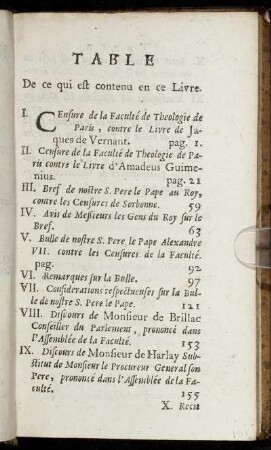 TABLE
De ce qui est contenu en ce Livre.
I. CEnsure de la Faculté de Theologie de
Paris, contre le Livre de Ja-
ques de Vernant. pag. 1.
II. Censure de la Faculté de Theologie de Pa-
ris contre le Livre d'Amadeus Guime-
nius. pag. 21
III. Bref de nostre S. Pere le Pape au Roy,
contre les Censures de Sorbonne. 59
IV. Avis de Messieurs les Gens du Roy sur le
Bref. 63
V. Bulle de nostre S. Pere le Pape Alexandre
VII. contre les Censures de la Faculté.
pag. 92
VI. Remarques sur la Bulle. 97
VII. Considerations respectueuses sur la Bul-
le de nostre S. Pere le Pape. 121
VIII. Discours de Monsieur de Brillac
Conseiller du Parlement, prononcé dans
l'Assemblée de la Faculté. 153
IX. Discours de Monsieur de Harlay Sub-
stitut de Monsieur le Procureur General son
Pere, prononcé dans l'Assemblée de la Fa-
culté. 155